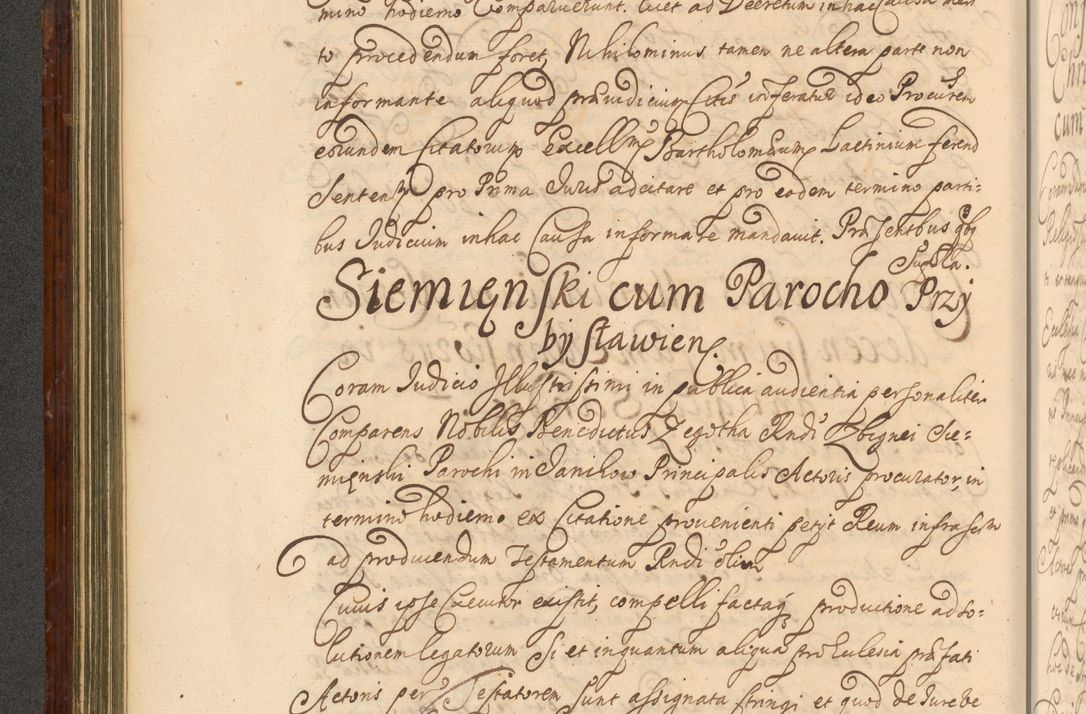 mino hodierno Comparuerunt. licet ad Decretum in hac Causa meri
to procedendum foret, Nihilominus tamen ne altera parte non
informante aliquod præiudicium Citis inferatur ideo Procurem
eorundem Citatorum Excellm Bartholomæum Lactinium ferend
Sentens pro Prima Juris adcitare et pro eodem termino parti=
bus Judicium in hac Causa informare mandavit. Præsentibus qbs
Supra.
Siemięnski cum Parocho Przy
bysławien.
Coram Judicio Illustrissimi in publica audientia personaliter
Comparens Nobilis Benedictus Zegotha Rndi Zbignei Sie=
mięnski Parochi in Janikow Principalis Actoris procurator, in
termino hodierno ex Citatione provenienti petyt Reum infrascm
ad producendum Testamentum Rndi olim
Cuius ipse Executor existit, compelli factaq productione ad so=
lutionem legatorum Si et inquantum aliqua pro Eclesia præfati
Actoris per Testatorem sunt assignata stringi et quod de Jure ve